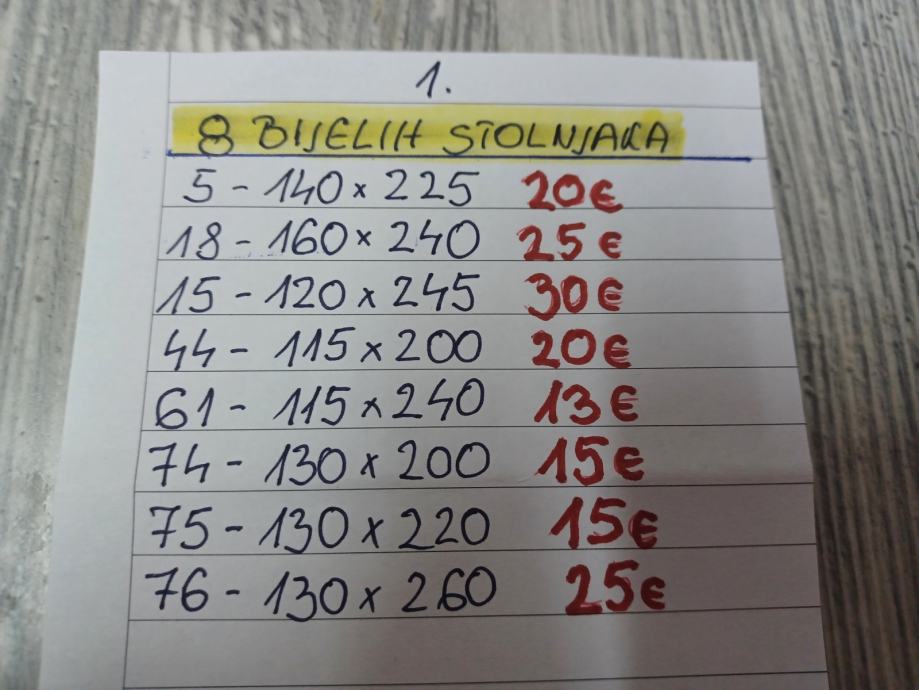 1.
8 BIJELIH STOLNJAKA
5 - 140 x 225 20€
18 - 160 x 240 25€
15 - 120 x 245 30€
44 - 115 x 200 20€
61 - 115 x 240 13€
74 - 130 x 200 15€
75 - 130 x 220 15€
76 - 130 x 260 25€